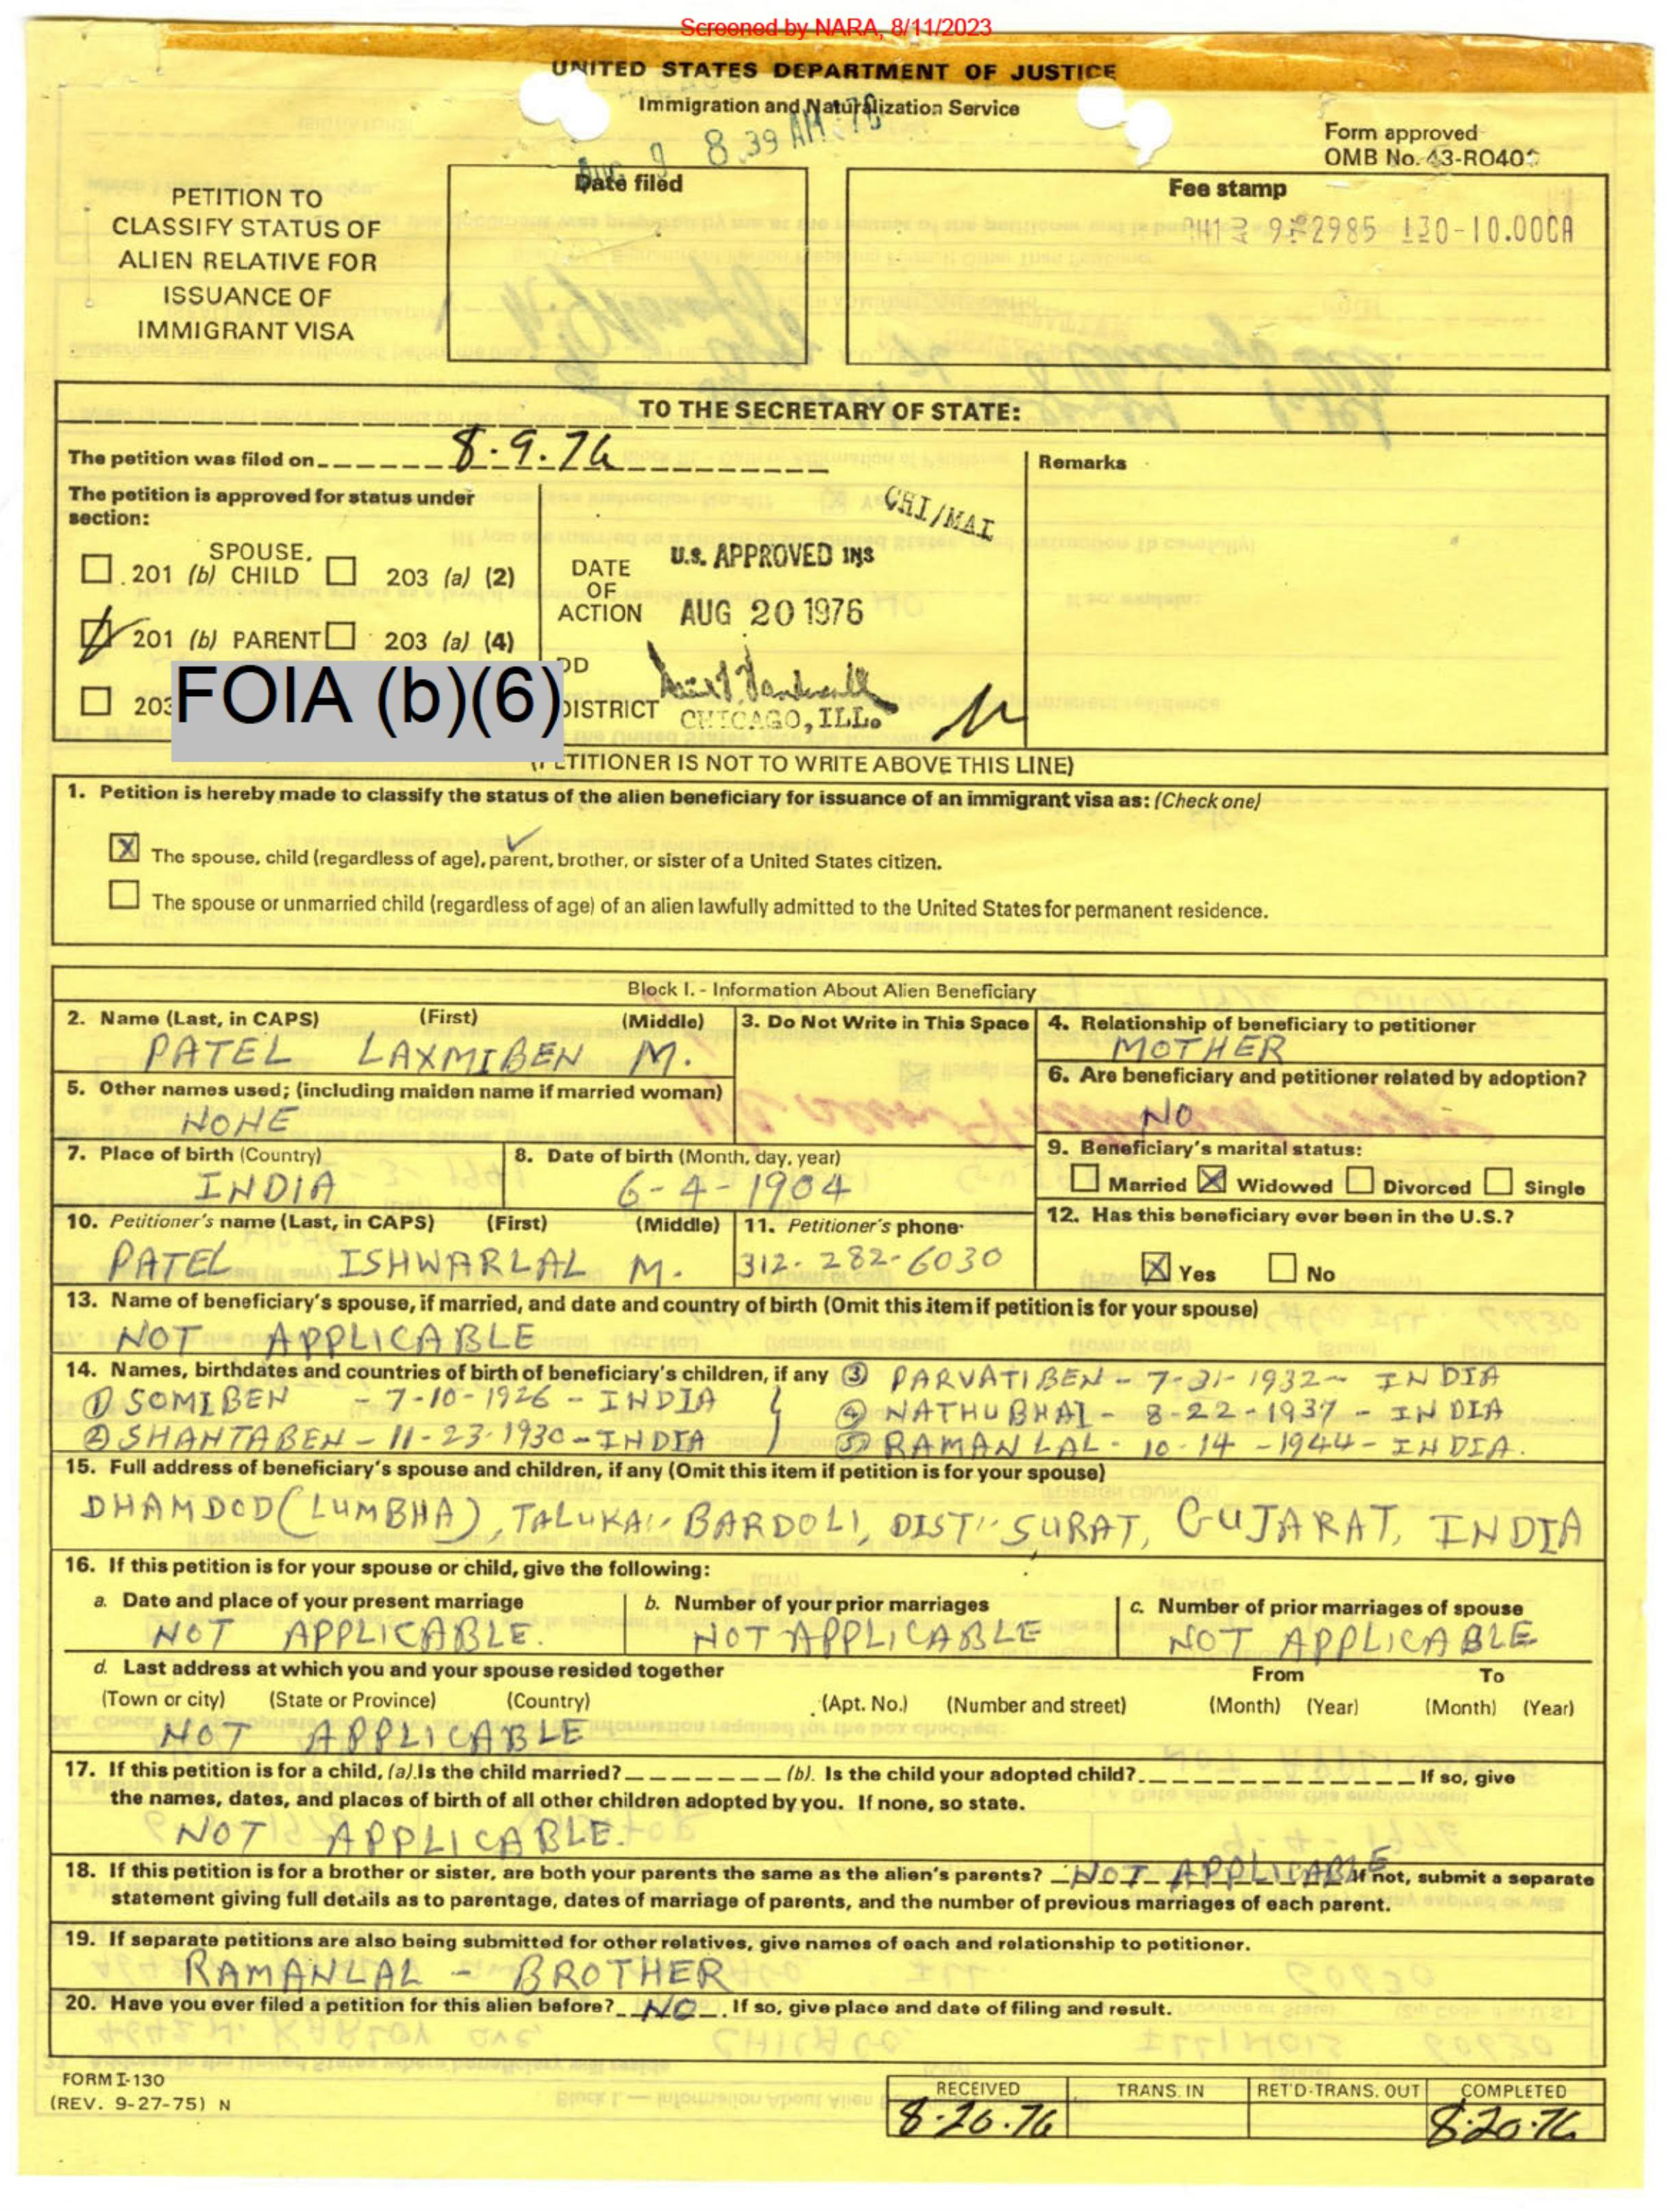 Screened by NARA, 8/11/2023
UNITED STATES DEPARTMENT OF JUSTICE
Immigration and Naturalization Service
8 39 AM
Form approved
OMB No. 43-RO40
PETITION TO
CLASSIFY STATUS OF
ALIEN RELATIVE FOR
ISSUANCE OF
IMMIGRANT VISA
Date filed
Fee stamp
2985 130-10.00CA
TO THE SECRETARY OF STATE:
The petition was filed on 8.9.76
Remarks
The petition is approved for status under
section:
201 (b) SPOUSE, CHILD
203 (a) (2)
201 (b) PARENT
203 (a) (4)
203
FOIA (b)(6)
CHI/MAI
DATE
OF
ACTION
U.S. APPROVED INS
AUG 20 1976
DD
DISTRICT
CHICAGO, ILL.
(PETITIONER IS NOT TO WRITE ABOVE THIS LINE)
1. Petition is hereby made to classify the status of the alien beneficiary for issuance of an immigrant visa as: (Check one)
X The spouse, child (regardless of age), parent, brother, or sister of a United States citizen.
The spouse or unmarried child (regardless of age) of an alien lawfully admitted to the United States for permanent residence.
Block I. - Information About Alien Beneficiary
2. Name (Last, in CAPS) (First) (Middle)
PATEL LAXMIBEN M.
3. Do Not Write in This Space
4. Relationship of beneficiary to petitioner
MOTHER
5. Other names used; (including maiden name if married woman)
NONE
6. Are beneficiary and petitioner related by adoption?
NO
7. Place of birth (Country)
INDIA
8. Date of birth (Month, day, year)
6-4-1904
9. Beneficiary's marital status:
Married X Widowed Divorced Single
10. Petitioner's name (Last, in CAPS) (First) (Middle)
PATEL ISHWARLAL M.
11. Petitioner's phone
312-282-6030
12. Has this beneficiary ever been in the U.S.?
X Yes No
13. Name of beneficiary's spouse, if married, and date and country of birth (Omit this item if petition is for your spouse)
NOT APPLICABLE
14. Names, birthdates and countries of birth of beneficiary's children, if any
① SOMIBEN - 7-10-1926 - INDIA
② SHANTABEN - 11-23-1930 - INDIA
③ PARVATIBEN - 7-31-1932 - INDIA
④ NATHUBHAI - 8-22-1937 - INDIA
⑤ RAMANLAL - 10-14-1944 - INDIA.
15. Full address of beneficiary's spouse and children, if any (Omit this item if petition is for your spouse)
DHAMDOD (LUMBHA), TALUKA:- BARDOLI, DIST:- SURAT, GUJARAT, INDIA
16. If this petition is for your spouse or child, give the following:
a. Date and place of your present marriage
NOT APPLICABLE.
b. Number of your prior marriages
NOT APPLICABLE
c. Number of prior marriages of spouse
NOT APPLICABLE
d. Last address at which you and your spouse resided together
From To
(Town or city) (State or Province) (Country) (Apt. No.) (Number and street) (Month) (Year) (Month) (Year)
NOT APPLICABLE
17. If this petition is for a child, (a). Is the child married? (b). Is the child your adopted child? If so, give
the names, dates, and places of birth of all other children adopted by you. If none, so state.
NOT APPLICABLE.
18. If this petition is for a brother or sister, are both your parents the same as the alien's parents? NOT APPLICABLE If not, submit a separate
statement giving full details as to parentage, dates of marriage of parents, and the number of previous marriages of each parent.
19. If separate petitions are also being submitted for other relatives, give names of each and relationship to petitioner.
RAMANLAL - BROTHER
20. Have you ever filed a petition for this alien before? NO. If so, give place and date of filing and result.
FORM I-130
(REV. 9-27-75) N
RECEIVED TRANS. IN RET'D-TRANS. OUT COMPLETED
8-20-76 8-20-76